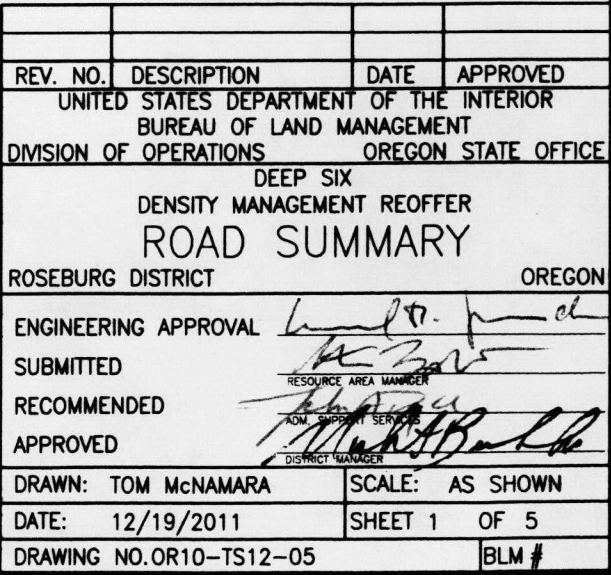 REV. NO. DESCRIPTION DATE APPROVED
UNITED STATES DEPARTMENT OF THE INTERIOR
BUREAU OF LAND MANAGEMENT
DIVISION OF OPERATIONS OREGON STATE OFFICE
DEEP SIX
DENSITY MANAGEMENT REOFFER
ROAD SUMMARY
ROSEBURG DISTRICT OREGON
ENGINEERING APPROVAL
SUBMITTED
RESOURCE AREA MANAGER
RECOMMENDED
ADM. SUPPORT SERVICES
APPROVED
DISTRICT MANAGER
DRAWN: TOM McNAMARA SCALE: AS SHOWN
DATE: 12/19/2011 SHEET 1 OF 5
DRAWING NO.OR10-TS12-05 BLM #